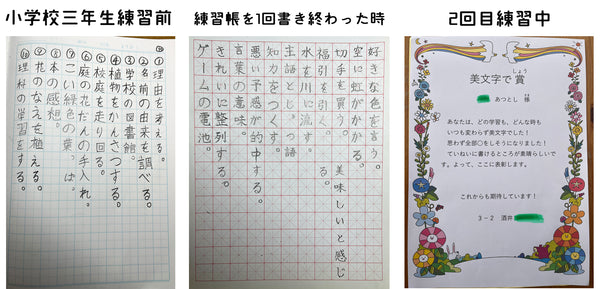 小学校三年生練習前
①理由を言う。
②名前の由来を調べる。
③学校の図書館。
④植物をかんさつする。
⑤校庭を走り回る。
⑥庭の花だんの手入れ。
⑦こい緑色の葉っぱ。
⑧本の感想。
⑨花のなえを植える。
⑩理科の学習をする。
練習帳を1回書き終わった時
好きな色を言う。
空に虹がかかる。
切手を買う。 美味しいと感じ
福引を引く。 る。
水を川に流す。
主語とじゅつ語
知力をつくす。
悪い予感が的中する。
言葉の意味。
きれいに整列する。
ゲームの電池。
2回目練習中
美文字で賞
しょう
あつとし 様
あなたは、どの学習も、どんな時も
いつも変わらず美文字でした!
思わず全部○をしそうになりました!
ていねいに書けるところが素晴らしいで
す。よって、ここに表彰します。
これからも期待しています!
3-2 酒井